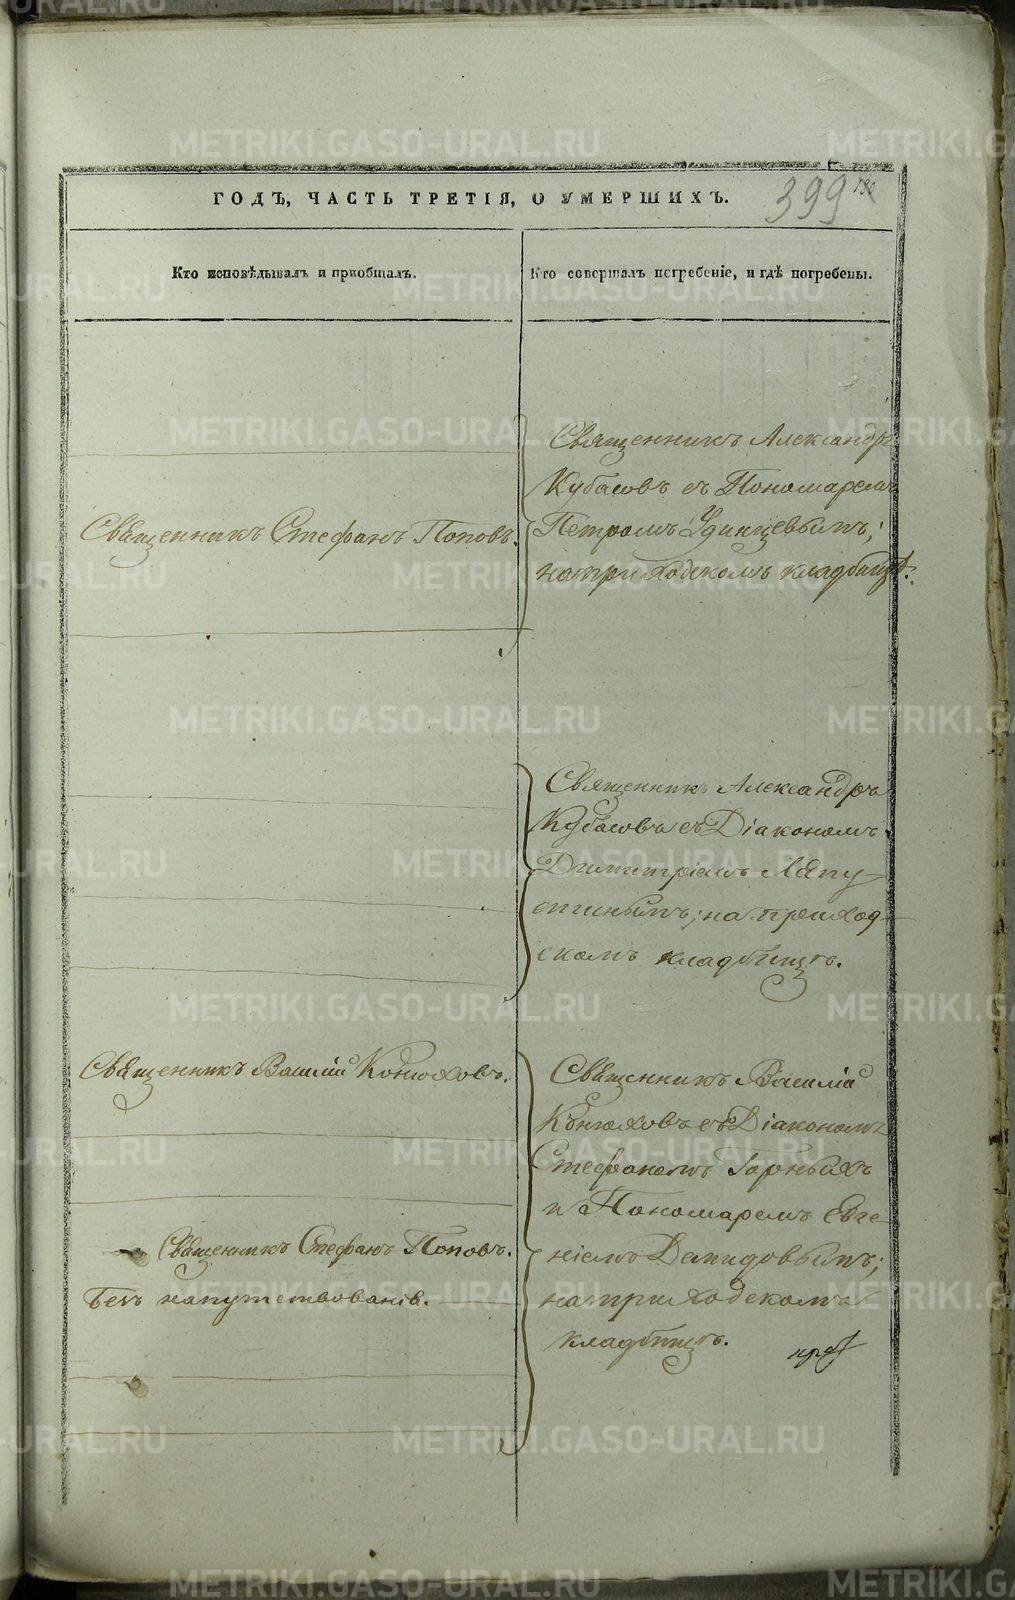 ГОДЪ, ЧАСТЬ ТРЕТІЯ, О УМЕРШИХЪ.
399
Кто исповѣдывалъ и приобщалъ.
Кто совершалъ погребеніе, и гдѣ погребены.
Священникъ Стефанъ Поповъ.
Священникъ Александръ
Кубасовъ съ Пономаремъ
Петромъ Удинцевымъ;
на приходскомъ кладбищѣ.
Священникъ Александръ
Кубасовъ съ Діакономъ
Димитріемъ Ляпу-
стинымъ; на приход-
скомъ кладбищѣ.
Священникъ Василій Конюховъ.
Священникъ Стефанъ Поповъ.
Безъ напутствованія.
Священникъ Василій
Конюховъ съ Діакономъ
Стефаномъ Горныхъ
и Пономаремъ Евге-
ніемъ Демидовымъ;
на приходскомъ
кладбищѣ.
METRIKI.GASO-URAL.RU